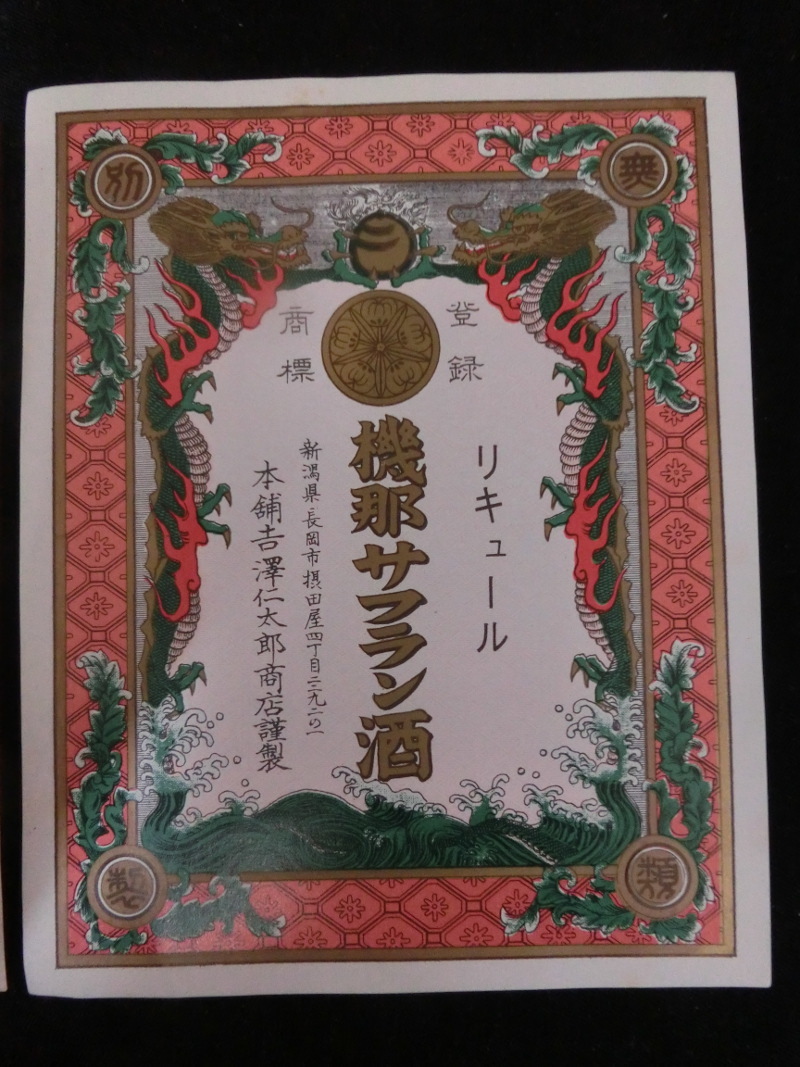 無類
別製
登録
商標
リキュール
機那サフラン酒
新潟県長岡市摂田屋四丁目二三九二の一
本舗吉澤仁太郎商店謹製